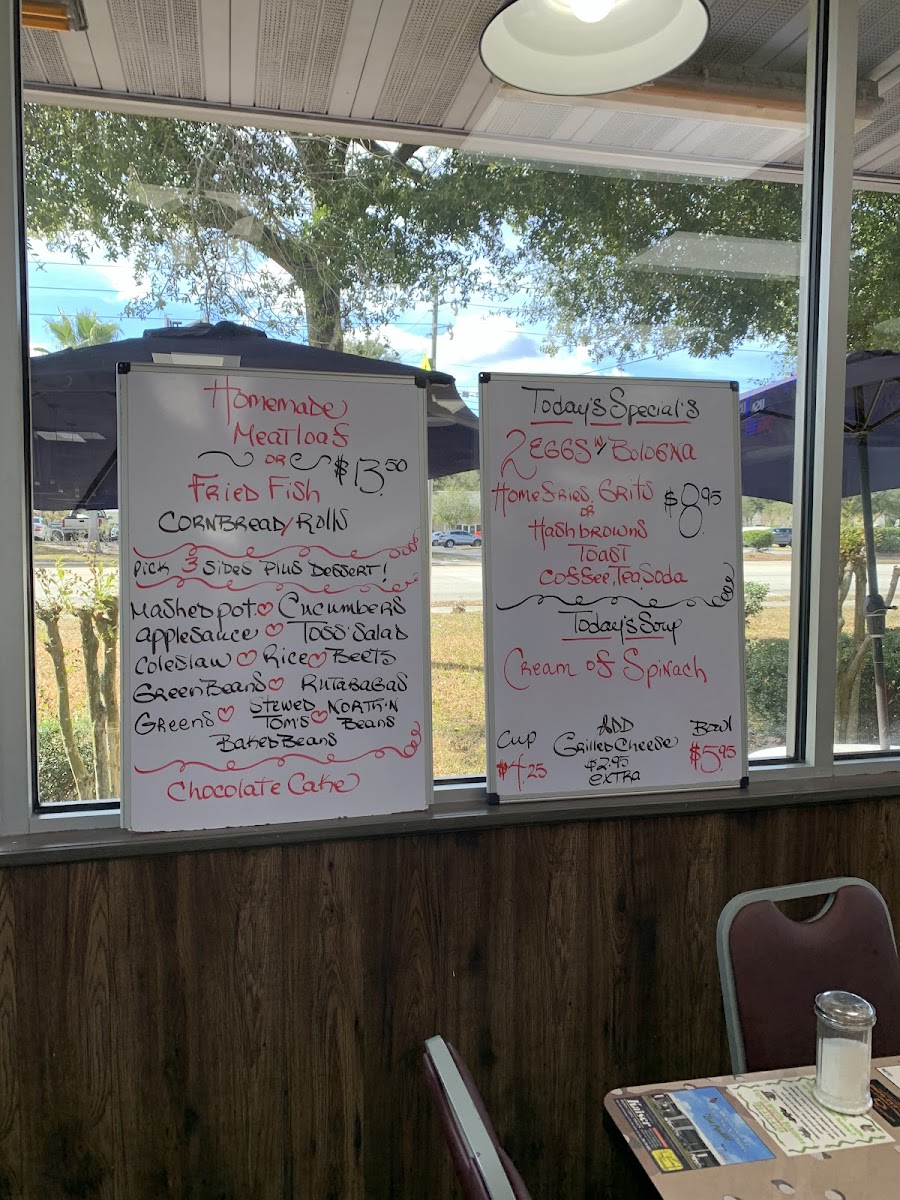 Homemade
Meatloaf
OR
$13.50
Fried Fish
Cornbread/Rolls
Pick 3 Sides Plus Dessert!
Mashed Pot ♡ Cucumbers
Applesauce ♡ Toss Salad
Coleslaw ♡ Rice ♡ Beets
Green Beans ♡ Rutabagas
Greens ♡ Stewed Tom's ♡ North'n Beans
Baked Beans
Chocolate Cake
Today's Special's
2 Eggs w/ Bologna
Homefries, Grits
OR
$8.95
Hashbrowns
Toast
Coffee, Tea, Soda
Today's Soup
Cream of Spinach
Cup
$4.25
ADD
Grilled Cheese
$2.95
extra
Bowl
$5.95